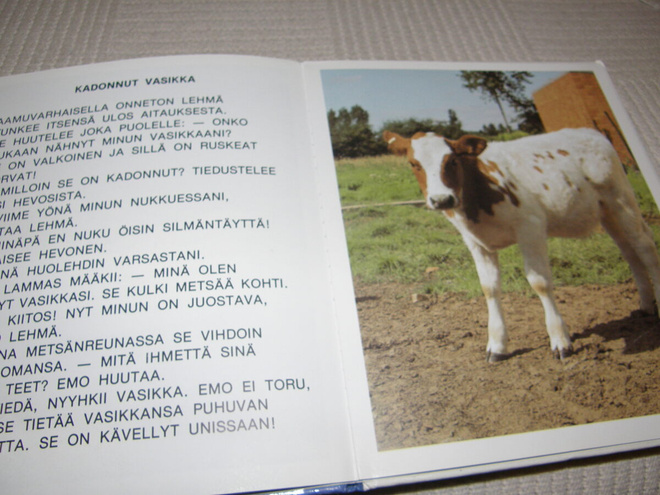 KADONNUT VASIKKA
AAMUVARHAISELLA ONNETON LEHMÄ
UNKEE ITSENSÄ ULOS AITAUKSESTA.
E HUUTELEE JOKA PUOLELLE: — ONKO
UKAAN NÄHNYT MINUN VASIKKAANI?
ON VALKOINEN JA SILLÄ ON RUSKEAT
ORVAT!
MILLOIN SE ON KADONNUT? TIEDUSTELEE
SI HEVOSISTA.
VIIME YÖNÄ MINUN NUKKUESSANI,
TAA LEHMÄ.
INÄPÄ EN NUKU ÖISIN SILMÄNTÄYTTÄ!
AISEE HEVONEN.
NÄ HUOLEHDIN VARSASTANI.
LAMMAS MÄÄKII: — MINÄ OLEN
YT VASIKKASI. SE KULKI METSÄÄ KOHTI.
KIITOS! NYT MINUN ON JUOSTAVA,
LEHMÄ.
NA METSÄNREUNASSA SE VIHDOIN
OMANSA. — MITÄ IHMETTÄ SINÄ
TEET? EMO HUUTAA.
IEDÄ, NYYHKII VASIKKA. EMO EI TORU,
SE TIETÄÄ VASIKKANSA PUHUVAN
TTA. SE ON KÄVELLYT UNISSAAN!